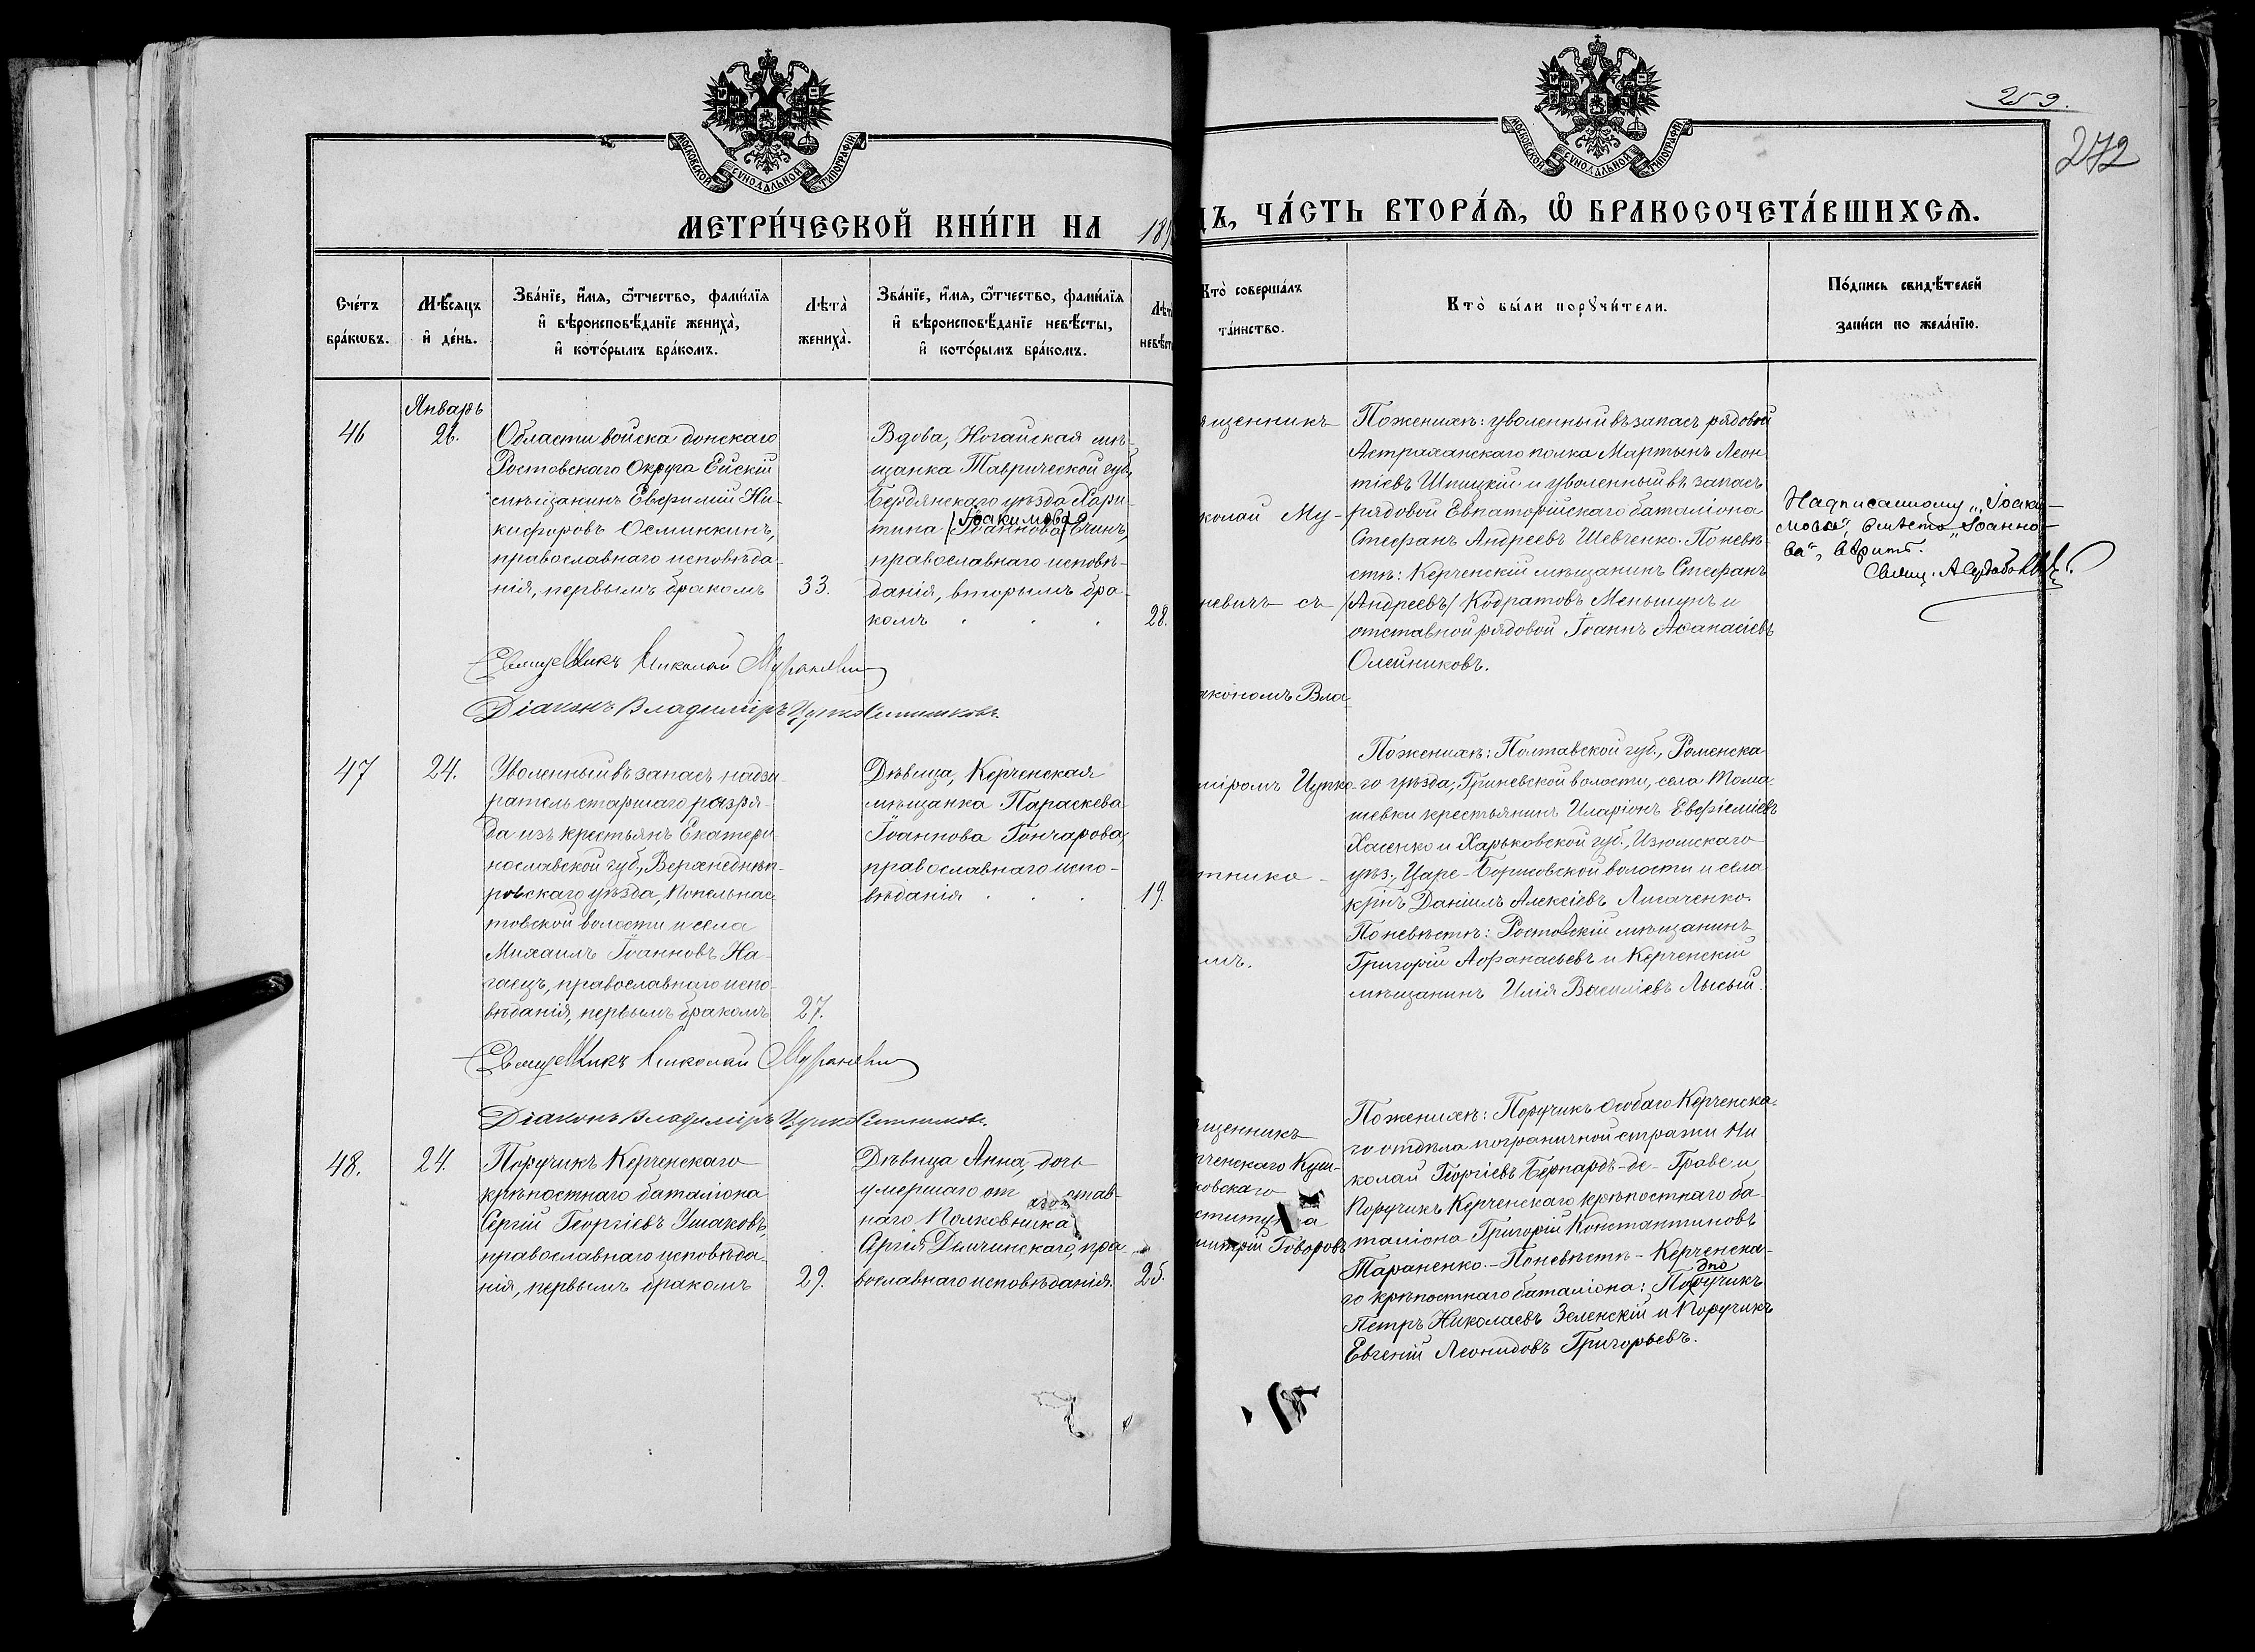 259.
272
МОСКОВСКОЙ СѴНОДАЛЬНОЙ ТИПОГРАФІИ
МОСКОВСКОЙ СѴНОДАЛЬНОЙ ТИПОГРАФІИ
МЕТРИ́ЧЕСКОЙ КНИ́ГИ НА 189
ДЪ, ЧА́СТЬ ВТОРА́Ѧ, Ѽ БРАКОСОЧЕТА́ВШИХСѦ.
Сче́тъ
бра́кѡвъ.
Мѣ́сяцъ
и҆ де́нь.
Зва́нїе, и҆́мя, ѻ҆́тчество, фами́лїя
и҆ вѣроисповѣ́данїе жениха̀,
и҆ кото́рымъ бра́комъ.
Лѣта̀
жениха̀.
Зва́нїе, и҆́мя, ѻ҆́тчество, фами́лїя
и҆ вѣроисповѣ́данїе невѣ́сты,
и҆ кото́рымъ бра́комъ.
Лѣт
невѣст
Кто̀ соверша́лъ
та́инство.
Кто̀ бы́ли порꙋчи́тели.
По́дпись свидѣ́телей
за́писи по жела́нїю.
Январь
46
26.
Области войска донскаго
Ростовскаго Округа Ейскій
мѣщанинъ Евфимій Ни-
кифоровъ Осминкинъ,
православнаго исповѣда-
нія, первымъ бракомъ
33.
Вдова, Ногайская мѣ-
щанка Таврической губ.,
Бердянскаго уѣзда Хари-
Іоакимова
тина (Іоаннова) Ечинъ,
православнаго исповѣ-
данія, вторымъ бра-
комъ . . .
28.
ященникъ
колай Му-
невичъ съ
акономъ Вла
Поженихѣ: уволенный въ запасъ рядовой
Астраханскаго полка Мартынъ Леон
тіевъ Шпицкій и уволенный въ запасъ
рядовой Евпаторійскаго баталіона
Стефанъ Андреевъ Шевченко. Поневѣ-
стѣ: Керченскій мѣщанинъ Стефанъ
(Андреевъ) Кодратовъ Меньшунъ и
отставной рядовой Іоаннъ Аѳанасіевъ
Олейниковъ.
Надписанному „Іоаки-
мова", вмѣсто „Іоанно-
ва", вѣрить.
Свящ. А
Священникъ Николай
Діаконъ Владиміръ Цупко
47
24.
Уволенный въ запасъ надзи-
ратель старшаго разря-
да изъ крестьянъ Екатери-
нославской губ., Верхнеднѣп-
ровскаго уѣзда, Попельнас-
товской волости и села
Михаилъ Іоанновъ На-
гаецъ, православнаго испо-
вѣданія, первымъ бракомъ
27.
Дѣвица, Керченская
мѣщанка Параскева
Іоаннова Гончарова,
православнаго испо-
вѣданія . . .
19.
міромъ Цупко-
тнико-
мъ.
Поженихѣ: Полтавской губ., Роменска
го уѣзда, Гриневской волости, села Тома-
шевки крестьянинъ Иларіонъ Евфиміевъ
Хасенко и Харьковской губ., Изюмскаго
уѣз., Царе-Борисовской волости и села
кр–нъ Даніилъ Алексіевъ Лисаченко.
Поневѣстѣ: Ростовскій мѣщанинъ
Григорій Аѳанасьевъ и Керченскій
мѣщанинъ Илія Василіевъ Лысый.
Священникъ Николай
Діаконъ Владиміръ Цупко
48.
24.
Поручикъ Керченскаго
крѣпостнаго баталіона
Сергій Георгіевъ Ушаковъ,
православнаго исповѣда-
нія, первымъ бракомъ
29.
Дѣвица Анна, дочь
умершаго от став-
наго Полковника
Сергія Демчинскаго, пра-
вославнаго исповѣданія.
25.
ященникъ
рченскаго Куш-
ковскаго
ститута
митрій Говоровъ
Поженихѣ: Поручикъ Особаго Керченска-
го отдѣла пограничной стражи Ни
колай Георгіевъ Бернардъ-де-Граве и
Поручикъ Керченскаго крѣпостнаго ба
таліона Григорій Константиновъ
Тараненко.-Поневѣстѣ-Керченска-
дпо
го крѣпостнаго баталіона: Поручикъ
Петръ Николаевъ Зеленскій и Поручикъ
Евгеній Леонидовъ Григорьевъ.